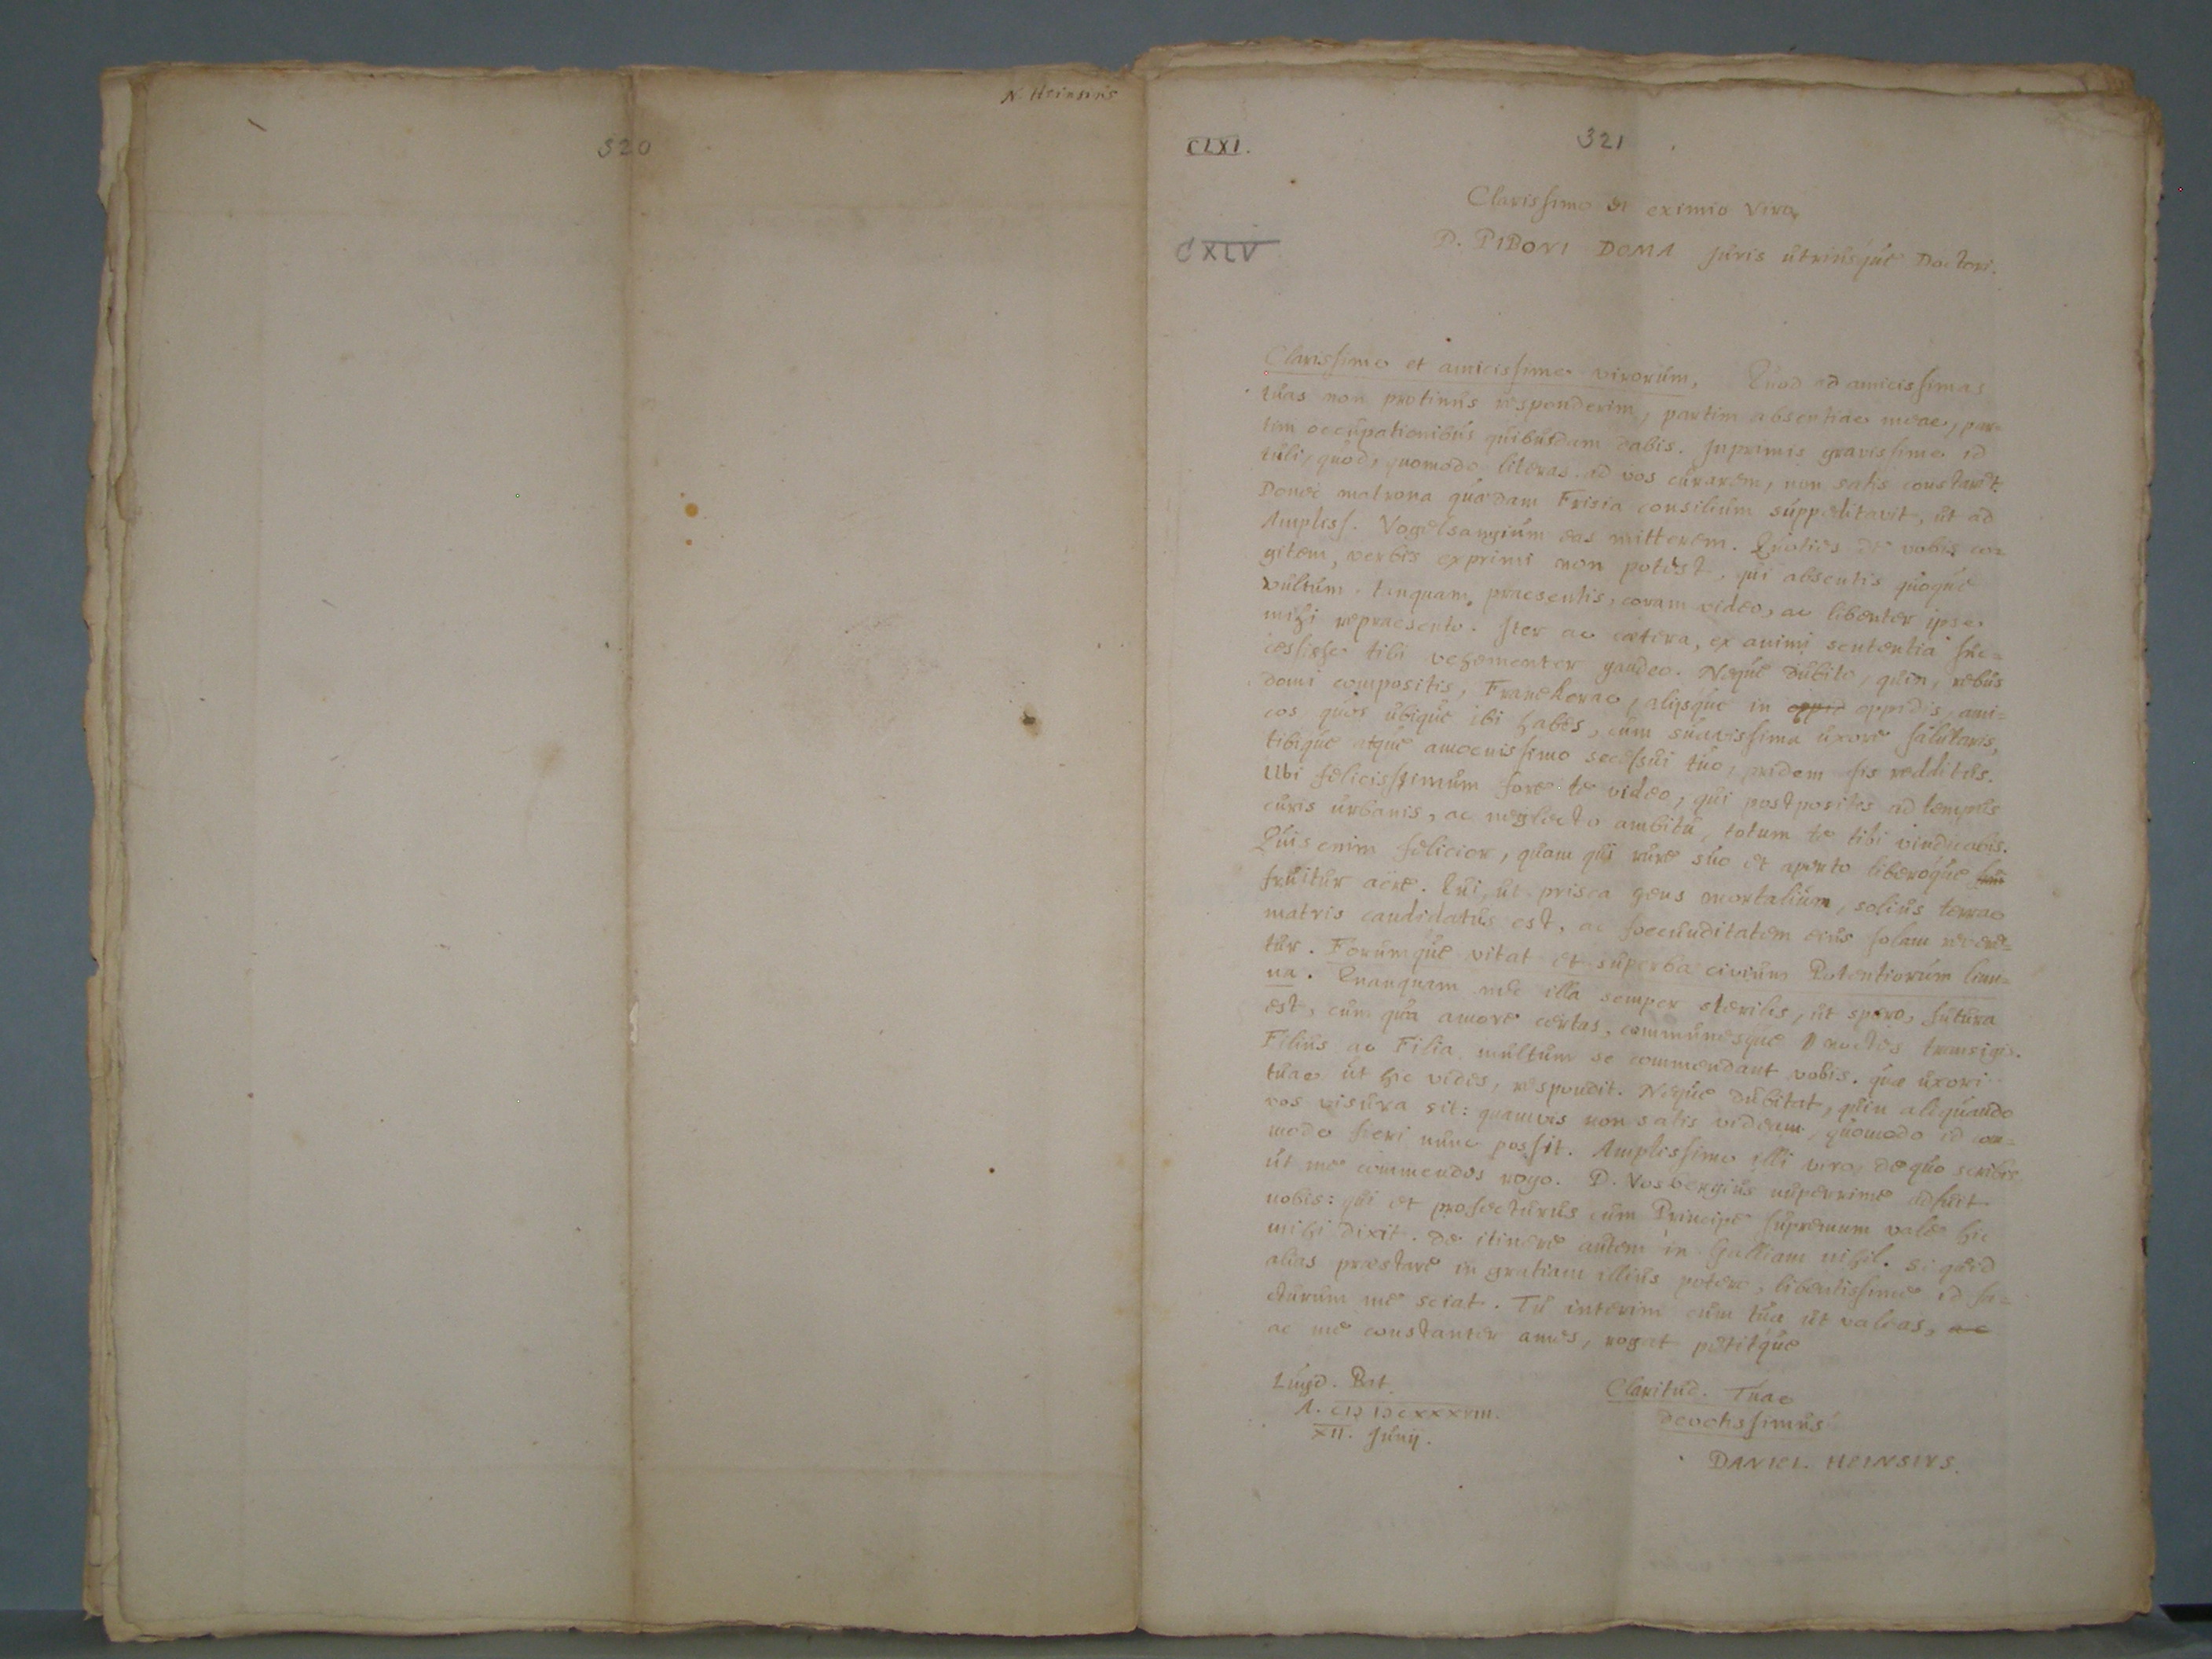 N. Heinsius
320
CLXI.
321
Clarissimo et eximio Viro,
CXLV
D. PIBONI DOMA Juris utriusque Doctori.
Clarissime et amicissime virorum, Quod ad amicissimas
tuas non protinus responderim, partim absentiae meae, par-
tim occupationibus quibusdam dabis. Inprimis gravissime id
tuli, quod, quomodo literas ad vos curarem, non satis constaret.
Donec matrona quaedam Frisia consilium suppeditavit, ut ad
Ampliss. Vogelsangium eas mitterem. Quoties de vobis co-
gitem, verbis exprimi non potest, qui absentis quoque
vultum tanquam praesentis, coram video, ac libenter ipse
mihi repraesento. Iter ac caetera, ex animi sententia suc-
cessisse tibi vehementer gaudeo. Neque dubito, quin, rebus
domi compositis, Franekerae, aliisque in oppid oppidis, ami-
cos quos ubique ibi habes, cum suavissima uxore salutaris,
tibique atque amoenissimo secessui tuo, pridem sis redditus.
Ubi felicissimum fore te video, qui postpositis ad tempus
curis urbanis, ac neglecto ambitu, totum te tibi vindicabis.
Quis enim felicior, quam qui rure suo et aperto liberoque frui
fruitur aëre. Qui, ut prisca gens mortalium, solius terrae
matris candidatus est, ac foecunditatem eius solam revere-
tur. Forumque vitat et superba civium Potentiorum limi-
na. Quanquam nec illa semper sterilis, ut spero, futura
est, cum qua amore certas, communesque noctes transigis.
Filius ac Filia multum se commendant vobis. quae uxori
tuae ut hic vides, respondit. Neque dubitat, quin aliquando
vos visura sit: quamvis non satis videam, quomodo id com-
mode fieri nunc possit. Amplissimo illi viro, de quo scribis
ut me commendes rogo. D. Vosbergius nuperrime adfuit
nobis: qui et profecturus cum Principe supremum vale hic
mihi dixit. De itinere autem in Galliam nihil. Si quid
alias praestare in gratiam illius potero, libentissime id fa-
cturum me sciat. Tu interim cum tua ut valeas, ac
ac me constanter ames, rogat petitque
Lugd. Bat.
A. CIƆ IƆCXXXVIII.
XII. Junij.
Claritud. Tuae
devotissimus
DANIEL HEINSIVS.